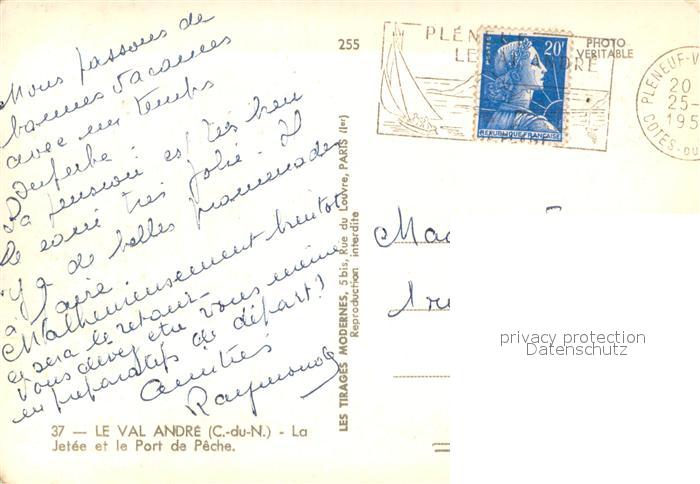 Nous passons de
bonnes vacances
avec un temps
superbe.
La pension est très bien
le coin très jolie. Il
y a de belles promenades
à faire.
Malheureusement bientôt
ce sera le retour.
Vous devez être vous même
en préparatifs de départ!
Amitiés
Raymonde
37 — LE VAL ANDRÉ (C.-du-N.) - La
Jetée et le Port de Pêche.
255
LES TIRAGES MODERNES, 5 bis, Rue du Louvre, PARIS (Ier)
Reproduction interdite
PLENEUF
LE ANDRÉ
POSTES
20F
REPUBLIQUE FRANÇAISE
PHOTO
VERITABLE
PLENEUF-V
20
25-
195
COTES-DU
privacy protection
Datenschutz